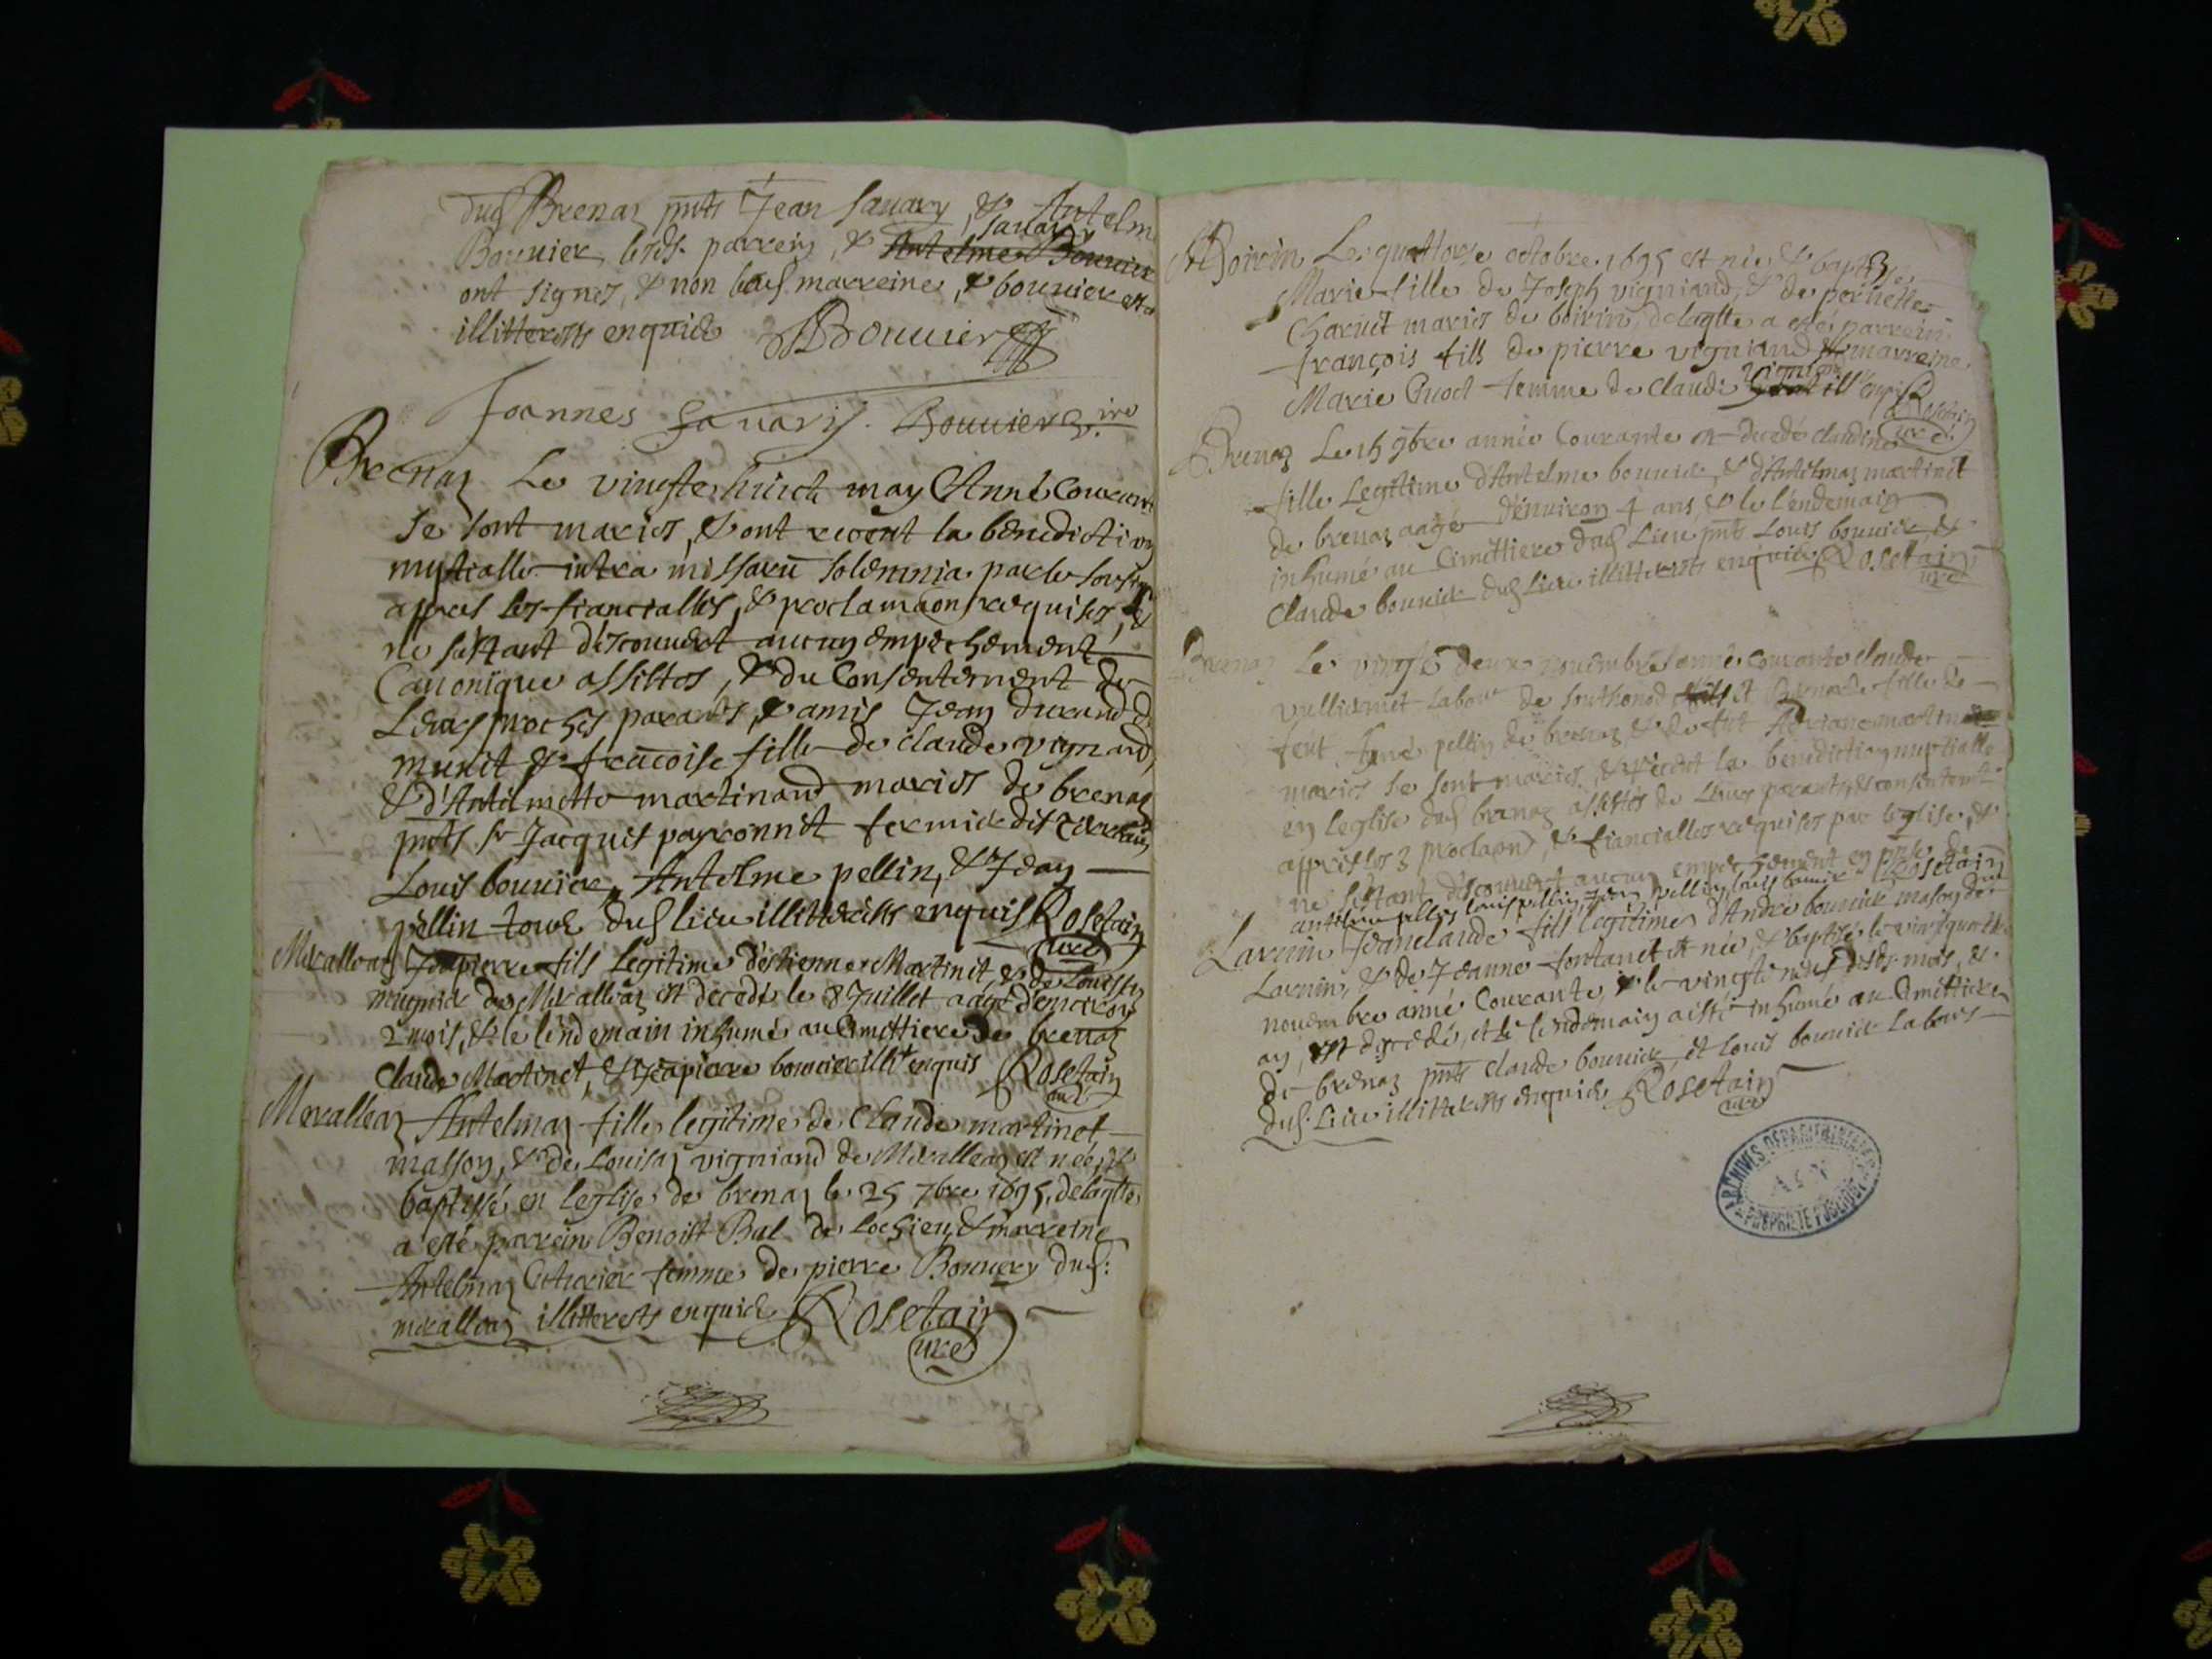 dud Brenaz pnts Jean Savary, & Antelme
Bouvier lesds. parrein, & Savary
Antelme Bouvier
ont signes, & non lad marreine, & bouvier est
illitterests enquis ABouvier
Joannes Savary. Bouvier
Brenaz Le vingte huict may Anné Courante
Se sont mariés, & ont receut la benediction
nuptialle intra missarū solemnia par le soussigné
appres les fiancialles, & proclamaōns requises, &
ne sestant descouvert aucun empechement
Canonique assistes, & du Consentement de
Leurs proches parants, & amis Jean durand d
munet & frācoise fille de claude vignand,
& d'Antelmette martinand mariés de brenaz
pnts sr Jacques payronnet fermier des terreaux,
Louis bouvier, Antelme pellin, & Jean
pellin tous dud lieu illitterests enquis Rosetain
curé
Meralleaz Jeāpierre fils legitime d'estienne Martinet, & de Louise
mugnier de Meralleaz est decedé le 8 Juillet aagé d'environ
2 mois, & le lendemain inhumé au Cimettiere de brenaz
Claude Martinet, & Jeāpierre bouvier illit enquis Rosetain
curé
Meralleaz Antelmaz fille legitime de Claude martinet
masson, & de Louisaz vigniand de Meralleaz est née, &
baptisée en leglise de brenaz le 25 7bre 1695, de laqtte
a esté parrein Benoist Bal de Lochieu, & marreine
Antelmaz Cuturier femme de pierre Bouvery dud:
meralleaz illitterests enquis Rosetain
curé
Boirin Le quattorze octobre 1695 est née & baptisée
Marie fille de Joseph vigniand, & de pernette
Charvet mariés de boirin, de laqtte a esté parrein
françois fills de pierre vigniand & marreine
Marie Cuoct femme de Claude vigniand ill enquis Rosetain
curé
Brenaz Le 15 9bre année Courante est decedé claudine
fille Legitime d'Antelme bouvier, & d'Antelmaz martinet
de brenaz aagé d'environ 4 ans, & le l'endemain
inhumé au Cimettiere dud Lieu pnts Louis bouvier, &
Claude bouvier dud Lieu illitterests enquis Rosetain
curé
Brenaz Le vingte deux novembre anné courante claude
vulliermet labour de southonod et Bernarde fille de
feut pellin de brenaz, & de fut Adriane martin
mariés se sont mariés, & receut la benediction nuptialle
en leglise dud brenaz assistés de leurs parants, & consentemt
appres les 3 proclaōns, & fiancialles requises par leglise, &
ne sestant descouvert aucun empechement en pnce de
anthelme pellin, louis pellin, Jean pellin, louis bouvier Rosetain curé
Lavnin Jeanclaude fils legitime d'Andre bouvier masson de
Lavnin, & de Jeanne fontanet est née, & baptisé le vingtquattre
novembre anné Courante, & le vingtineuf desds. mois, &
an, est decedé, et le lendemain a esté inhumé au Cimettiere
de brenaz pnts claude bouvier, et louis bouvier labours
dud. Lieu illitterests enquis Rosetain
curé
ARCHIVES DEPARTEMENTALES
AIN
PROPRIETE PUBLIQUE